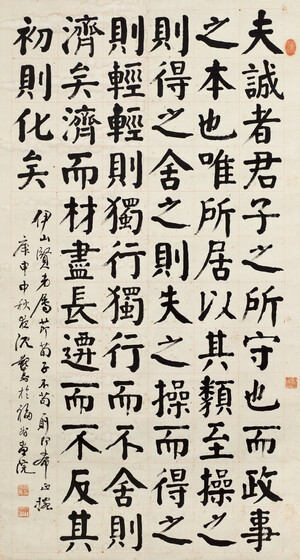 夫誠者君子之所守也而政事
之本也唯所居以其類至操之
則得之舍之則失之操而得之
則輕輕則獨行獨行而不舍則
濟矣濟而材盡長遷而不反其
初則化矣
伊山賢弟屬節荀子不苟即希正捥
庚申中秋後沈覲壽於福州畫院